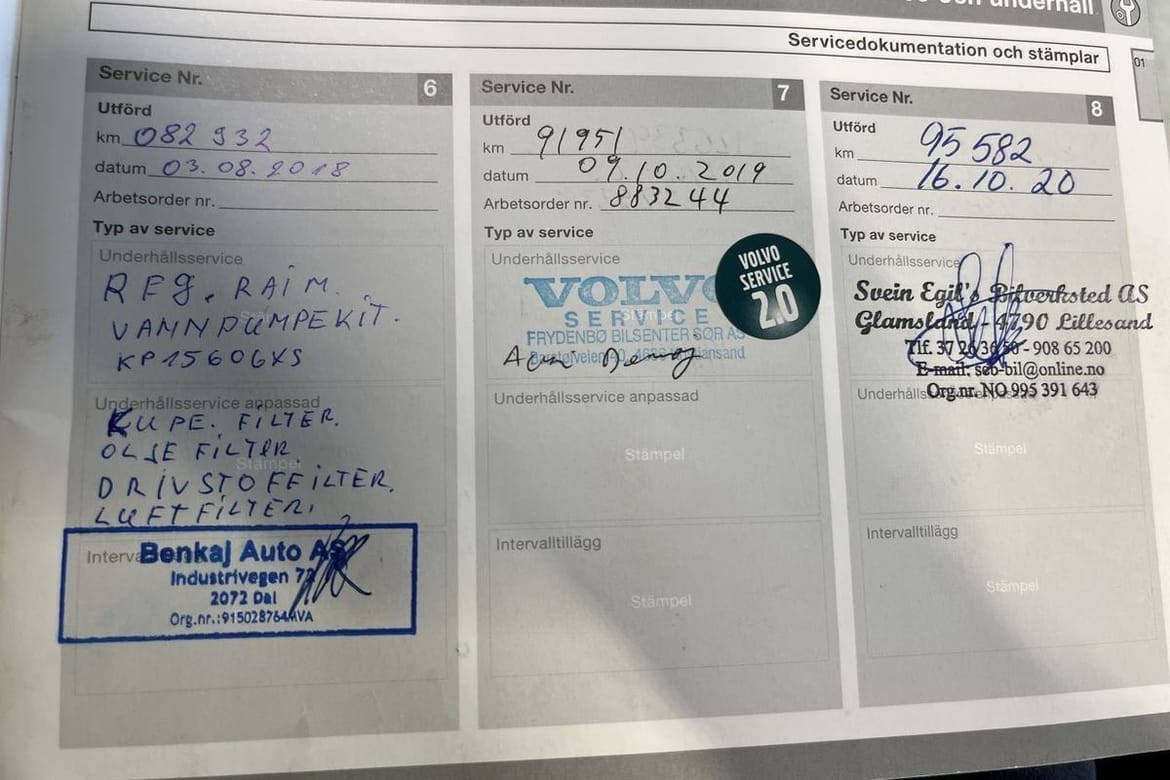 och underhåll
Servicedokumentation och stämplar
01
Service Nr. 6
Utförd
km 082 932
datum 03.08.2018
Arbetsorder nr.
Typ av service
Underhållsservice
REG. RAIM.
VANNPUMPEKIT.
KP15606XS
Underhållsservice anpassad
KUPE. FILTER.
OLJE FILTER
Stämpel
DRIVSTOFFILTER.
LUFTFILTER.
Benkaj Auto AS
Industrivegen 72
2072 Dal
Org.nr.:915028764MVA
Service Nr. 7
Utförd
km 91951
datum 09.10.2019
Arbetsorder nr. 883244
Typ av service
Underhållsservice
VOLVO
SERVICE
FRYDENBØ BILSENTER SØR AS
VOLVO
SERVICE
2.0
Underhållsservice anpassad
Stämpel
Intervalltillägg
Stämpel
Service Nr. 8
Utförd
km 95 582
datum 16.10.20
Arbetsorder nr.
Typ av service
Underhållsservice
Svein Egil's Bilverksted AS
Glamsland - 4790 Lillesand
Tlf. 37 26 36 50 - 908 65 200
E-mail: seb-bil@online.no
Org.nr. NO 995 391 643
Stämpel
Intervalltillägg
Stämpel